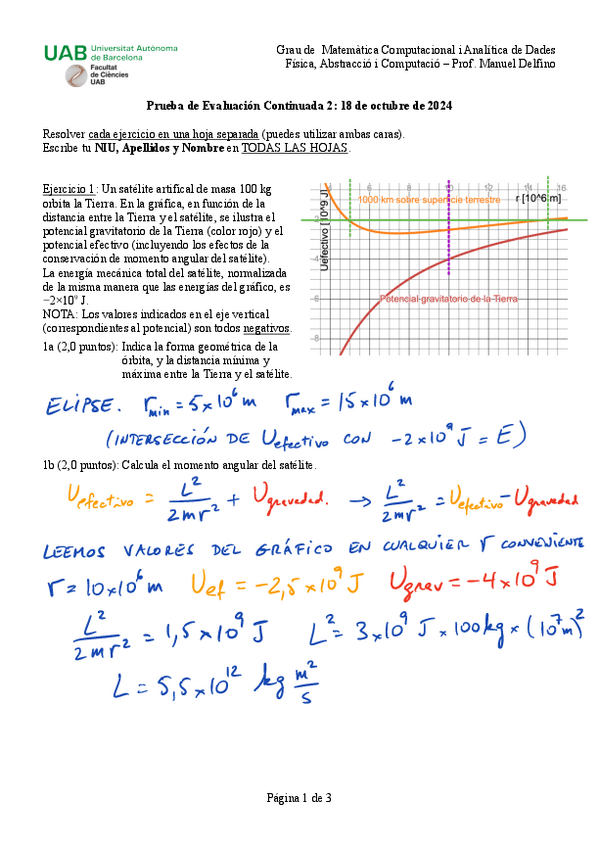 UAB Universitat Autònoma
de Barcelona
Facultat
de Ciències
UAB
Grau de Matemàtica Computacional i Analítica de Dades
Física, Abstracció i Computació – Prof. Manuel Delfino
Prueba de Evaluación Continuada 2: 18 de octubre de 2024
Resolver cada ejercicio en una hoja separada (puedes utilizar ambas caras).
Escribe tu NIU, Apellidos y Nombre en TODAS LAS HOJAS.
Ejercicio 1: Un satélite artifical de masa 100 kg
orbita la Tierra. En la gráfica, en función de la
distancia entre la Tierra y el satélite, se ilustra el
potencial gravitatorio de la Tierra (color rojo) y el
potencial efectivo (incluyendo los efectos de la
conservación de momento angular del satélite).
La energía mecánica total del satélite, normalizada
de la misma manera que las energías del gráfico, es
−2×10⁹ J.
NOTA: Los valores indicados en el eje vertical
(correspondientes al potencial) son todos negativos.
4 6 8 10 12 14 16
1000 km sobre superficie terrestre
r [10^6 m]
Uefectivo [10^9 J]
-2
-4
-6
-8
Potencial gravitatorio de la Tierra
1a (2,0 puntos): Indica la forma geométrica de la
órbita, y la distancia mínima y
máxima entre la Tierra y el satélite.
ELIPSE. r_min = 5×10⁶ m r_max = 15×10⁶ m
(INTERSECCIÓN DE Uefectivo CON −2×10⁹ J = E)
1b (2,0 puntos): Calcula el momento angular del satélite.
Uefectivo = L²/2mr² + Ugravedad. → L²/2mr² = Uefectivo − Ugravedad
LEEMOS VALORES DEL GRÁFICO EN CUALQUIER r CONVENIENTE
r = 10×10⁶ m Uef = −2,5×10⁹ J Ugrav = −4×10⁹ J
L²/2mr² = 1,5×10⁹ J L² = 3×10⁹ J × 100kg × (10⁷m)²
L = 5,5×10¹² kg m²/s
Página 1 de 3